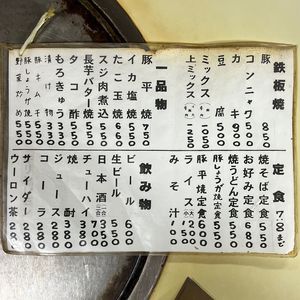 鉄板焼
豚 850
コンニャク 500
カキ 900
豆腐 500
ミックス
上ミックス 1250
一品物
豚平焼 750
イカ塩焼 550
たこ玉焼 550
スジ肉煮込 550
長芋バター焼 550
タコ酢 550
もろきゅう 350
漬け物 330
豚キムチ 550
豚しょうが焼 550
野菜炒め 550
定食
焼そば定食 550
お好み定食 600
焼うどん定食 600
豚しょうが焼定食 650
豚平焼定食 800
ライス 大 小 200
みそ汁 100
飲み物
ビール 600
生ビール 550
日本酒
チューハイ 350
焼酎 350
ジュース 280
コーラ 280
サイダー 280
ウーロン茶 280